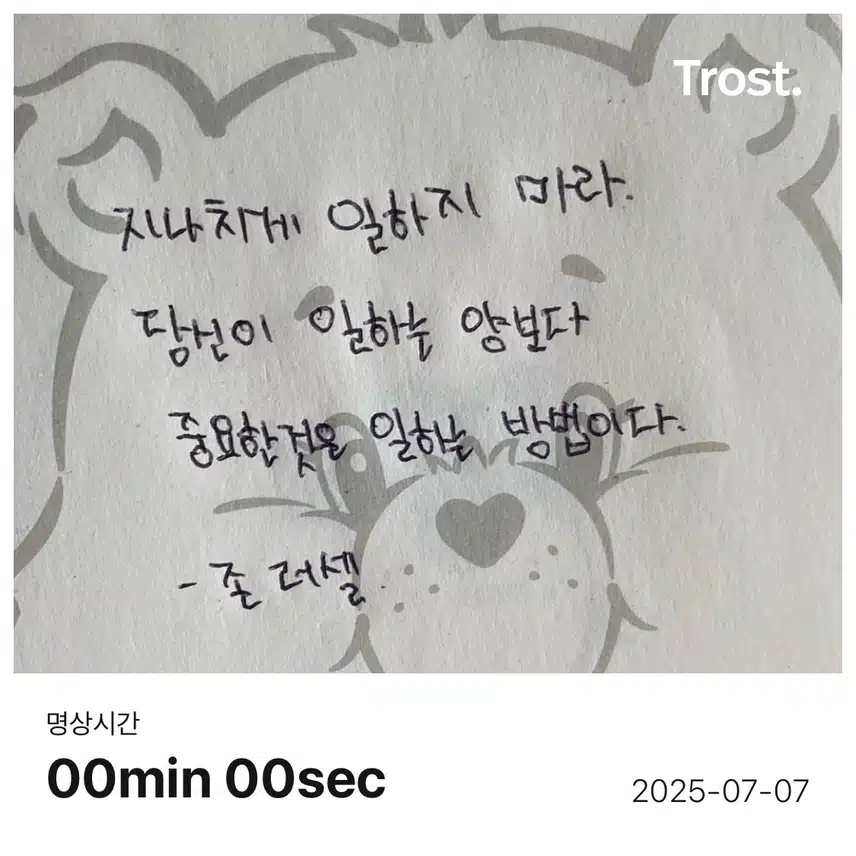 Trost.
지나치게 일하지 마라.
당신이 일하는 양보다
중요한것은 일하는 방법이다.
- 존 러셀.
명상시간
00min 00sec
2025-07-07